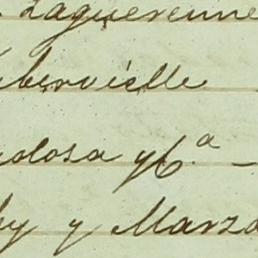 Laguerenne
bervielle
dosa y C.ª —
by y Marzo